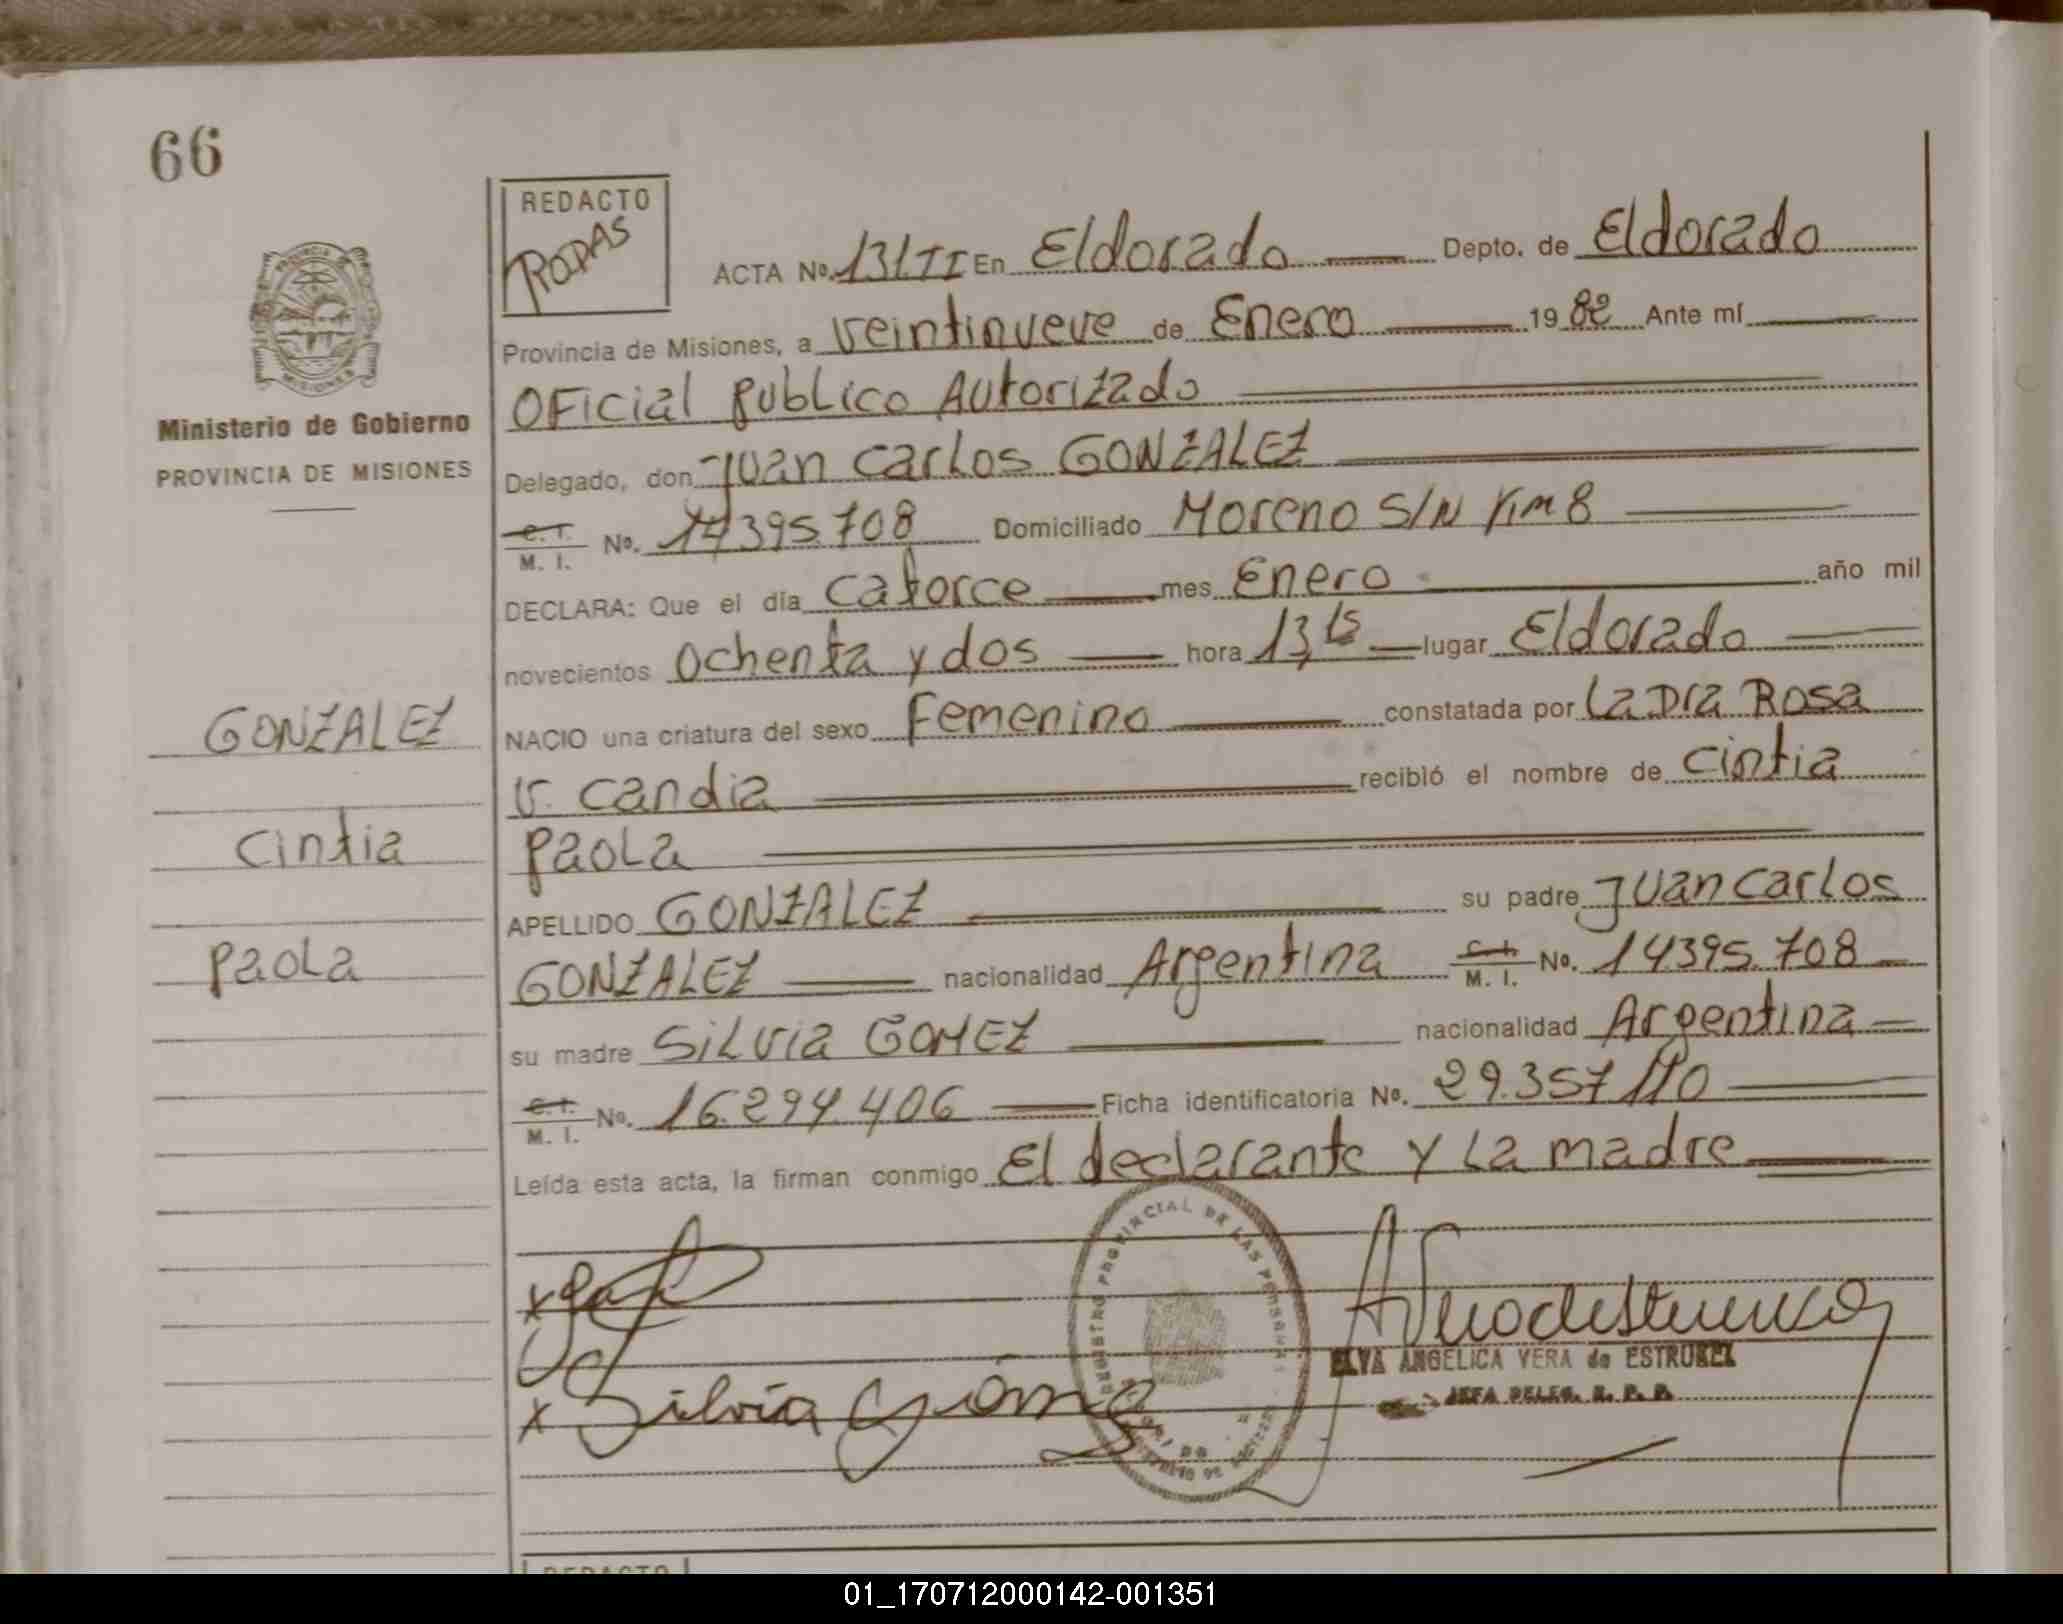 66
REDACTO
RODAS
ACTA No. 131 TI En Eldorado Depto. de Eldorado
Provincia de Misiones, a veintinueve de Enero 1982 Ante mí
Oficial Publico Autorizado
Ministerio de Gobierno
PROVINCIA DE MISIONES
Delegado, don Juan Carlos GONZALEZ
C. I. M. I. No. 14395.708 Domiciliado Moreno S/N Km 8
DECLARA: Que el día catorce mes Enero año mil
novecientos ochenta y dos hora 13,15 lugar Eldorado
GONZALEZ
NACIO una criatura del sexo Femenino constatada por La Dra Rosa
V. Candia recibió el nombre de Cintia
Cintia
Paola
APELLIDO GONZALEZ su padre Juan Carlos
Paola
GONZALEZ nacionalidad Argentina C. I. M. I. No. 14395.708
su madre Silvia GOMEZ nacionalidad Argentina
C. I. M. I. No. 16.294.406 Ficha identificatoria No. 29.357 170
Leída esta acta, la firman conmigo El declarante y La madre
REGISTRO PROVINCIAL DE LAS PERSONAS
ELVA ANGELICA VERA de ESTRUBEL
JEFA DELEG. R. P. P.
x
x Silvia Gómez
REDACTO
01_170712000142-001351